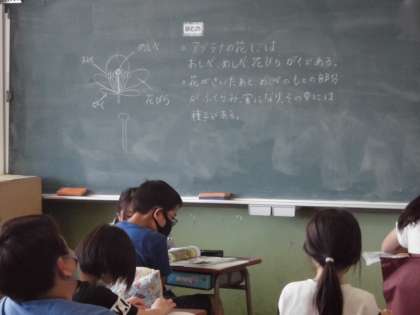 まとめ
・アブラナの花には
おしべ、めしべ、花びら、がくがある。
・花がさいたあと、めしべのもとの部分
がふくらみ、実になり、その中には
種子がある。
めしべ
おしべ
がく
花びら